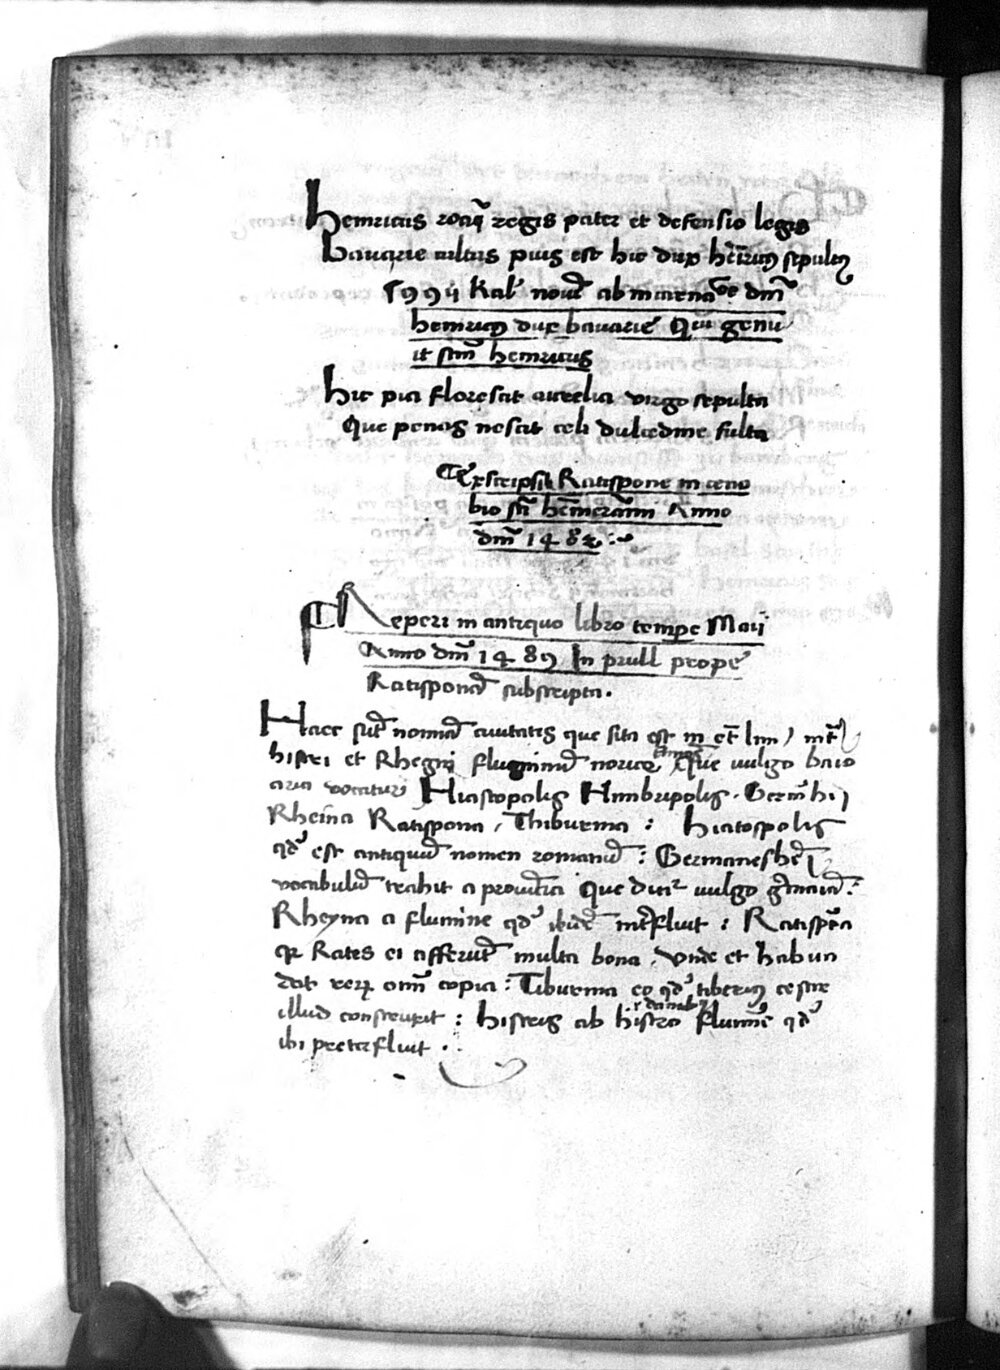 Heinricus totiꝰ regis pater et defensio legis
Bavarie cultus pius est hic dux heinricꝰ sepultꝰ
5992 Kal' nouē ab incarnaͨoe dm̄
heinricꝰ dux bauarie Qui genu
it sctm̄ heinricus
Hic pia florescit aurelia virgo sepulta
Que penas nescit celi dulcedine fulta
Exscripsi Ratispone in ceno
bio sct̄i hēmerammi Anno
dm̄ 1482
Reperi in antiquo libro tempe Maij
Anno dm̄ 1489 In prull prope
Ratisponā subscripta.
Haec sūt nomīa ciuitatis que sita est in
histri et Rhegni fluminū norice que vulgo baio
aria vocatur Hiastopolis Himbripolis. Germāhij
Rheina Ratispona, Thiburnia : hiatospolis
qd' est antiquū nomen romanū : Germanesheī
vocabulū trahit a prouīcia Que dicit' vulgo gmania :
Rheyna a flumine qd' ibidē int̄fluit : Ratispōa
qꝛ Rates ei afferūt multa bona, Vnde et habun
dat reꝝ oīm copia : Tiburnia eo qd' tiberiꝰ cesar
illud construxit : histris ab histro flumīe qd'
ibi preterfluit .